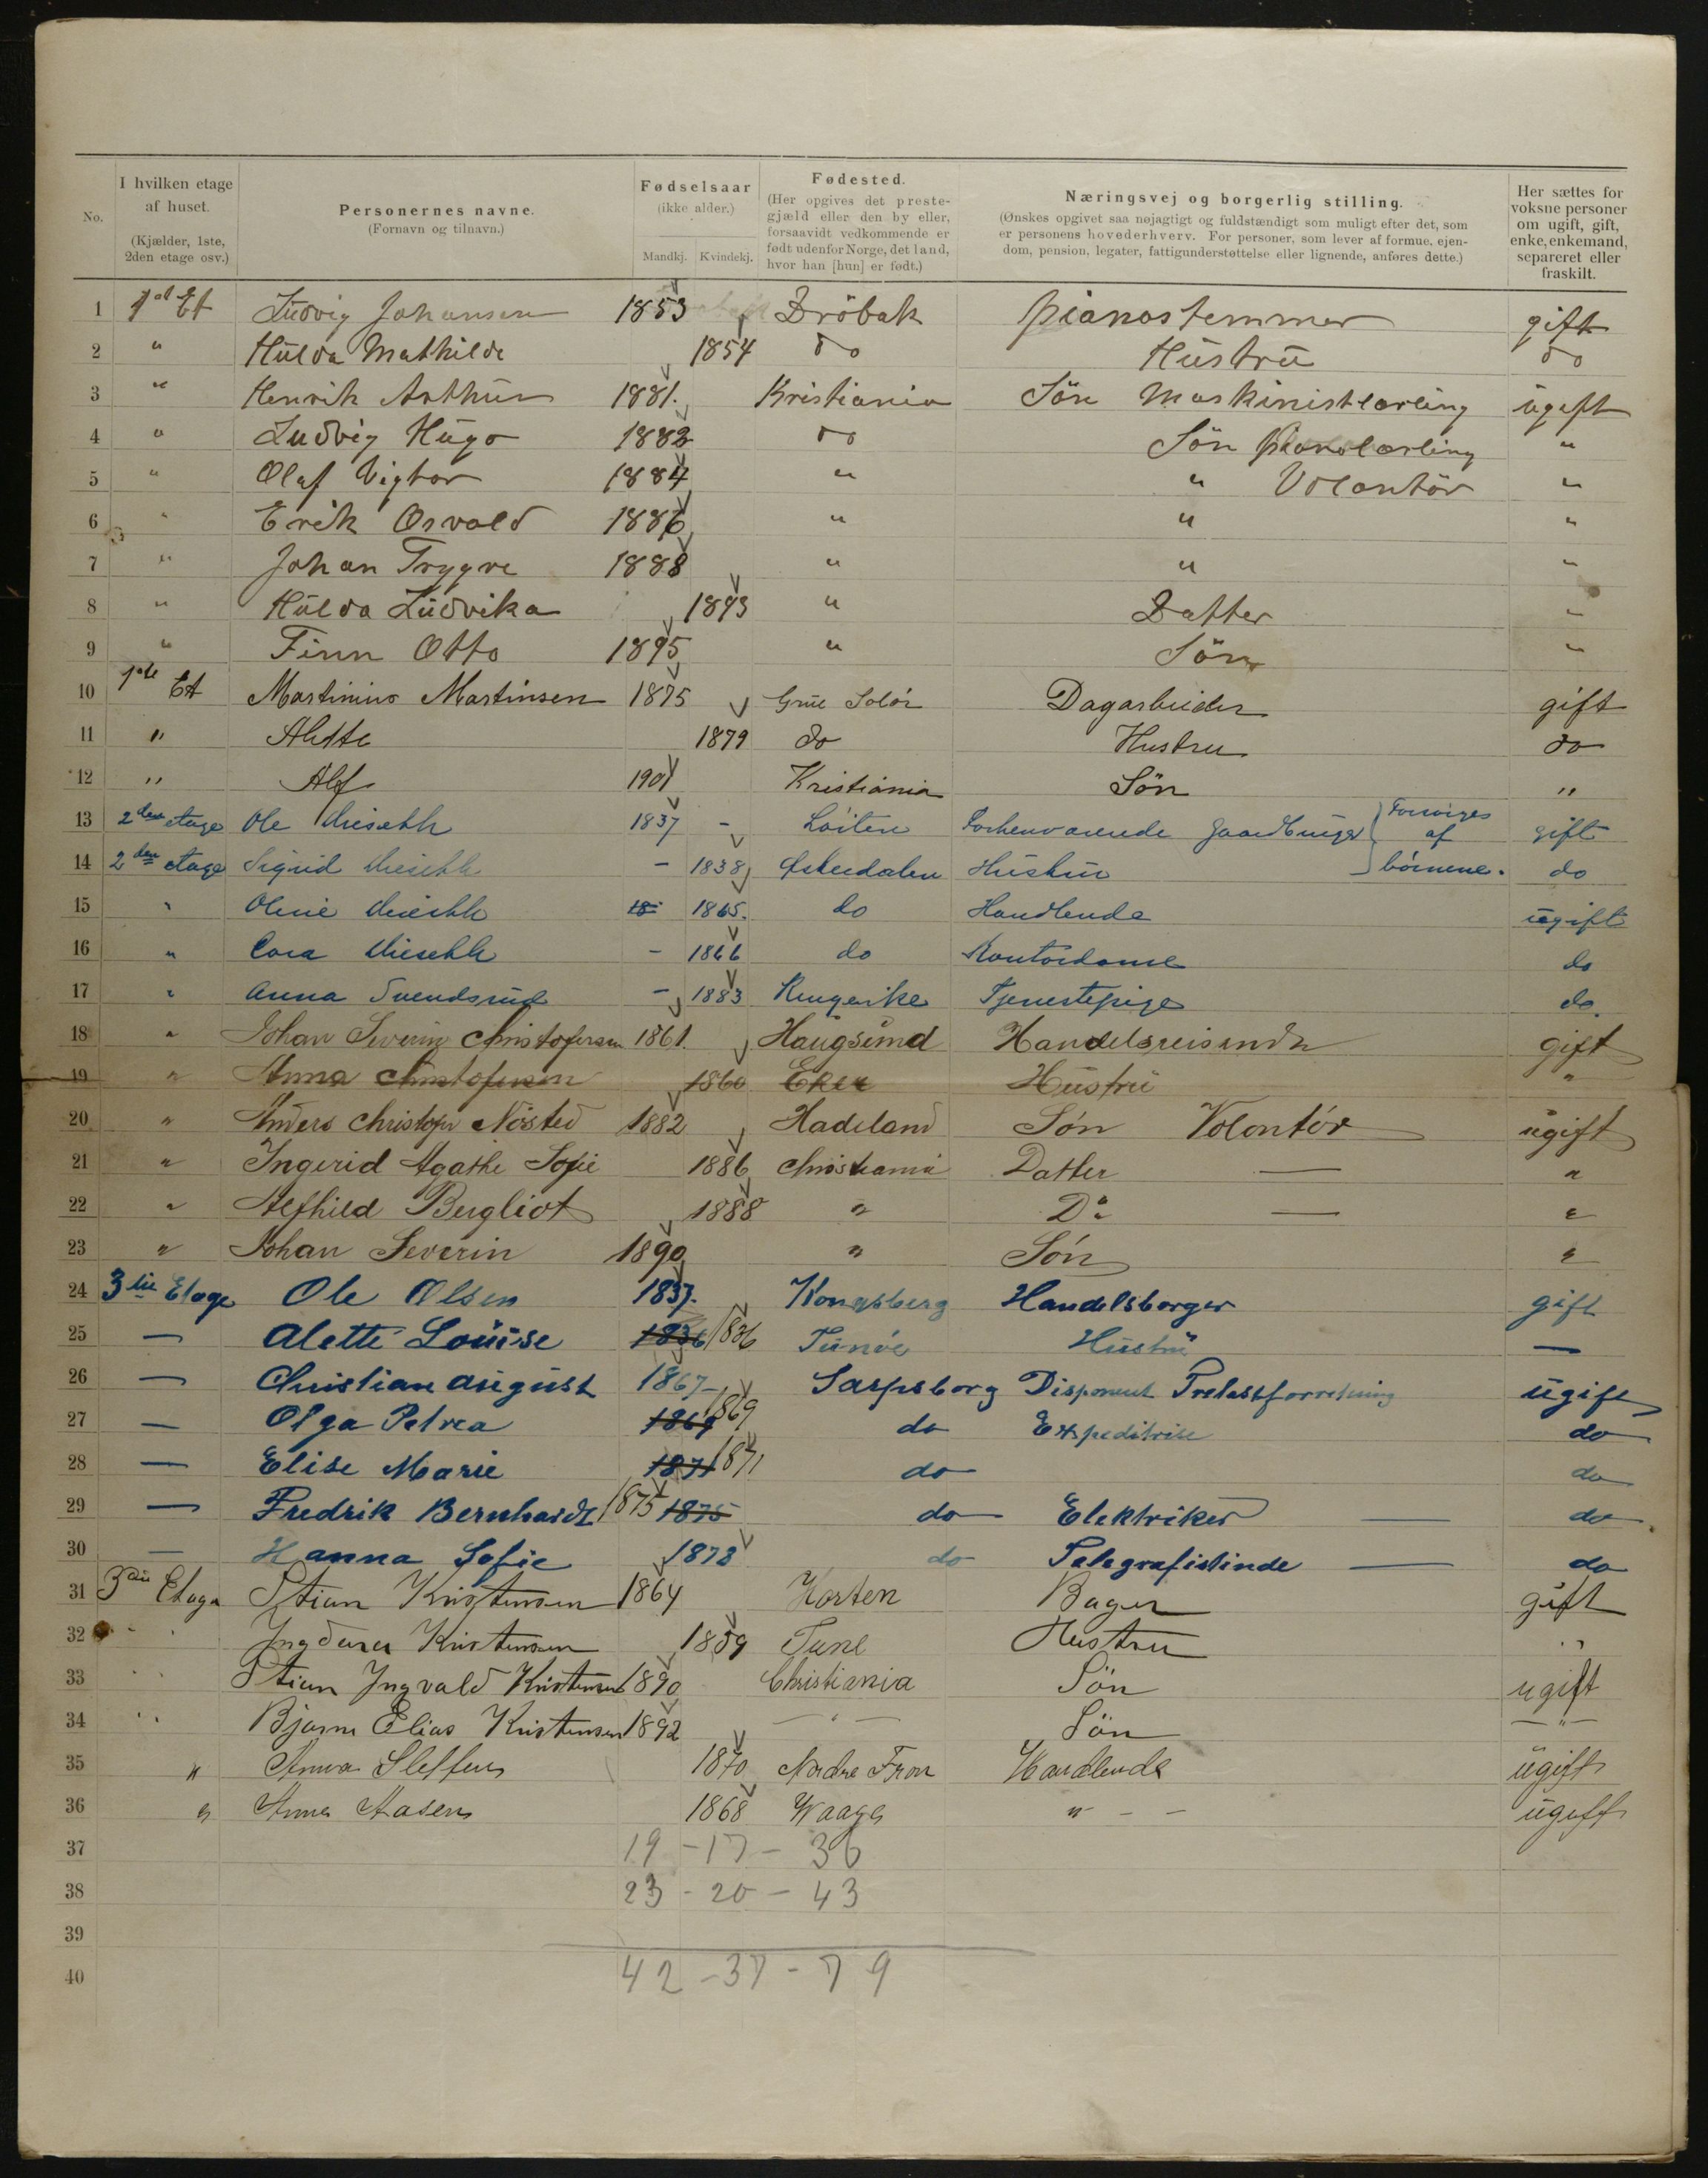 No.
I hvilken etage af huset. (Kjælder, 1ste, 2den etage osv.)
Personernes navne. (Fornavn og tilnavn.)
Fødselsaar (ikke alder.) Mandkj. Kvindekj.
Fødested. (Her opgives det prestegjæld eller den by eller, forsaavidt vedkommende er født udenfor Norge, det land, hvor han [hun] er født.)
Næringsvej og borgerlig stilling. (Ønskes opgivet saa nøjagtigt og fuldstændigt som muligt efter det, som er personens hovederhverv. For personer, som lever af formue, ejendom, pension, legater, fattigunderstøttelse eller lignende, anføres dette.)
Her sættes for voksne personer om ugift, gift, enke, enkemand, separeret eller fraskilt.
1 1st Et Ludvig Johansen 1853 Dröbak pianostemmer gift
2 " Hulda Mathilde 1854 do Hustru do
3 " Henrik Arthur 1881. Kristiania Sön Maskinistlærling ugift
4 " Ludvig Hugo 1882 do Sön pianolærling "
5 " Olaf Vigtor 1884 " " Volontör "
6 " Erik Osvald 1886 " " "
7 " Johan Trygve 1888 " " "
8 " Hulda Ludvika 1893 " Datter "
9 " Finn Otto 1895 " Sön "
10 1ste Et Martinius Martinsen 1875 Grue Solör Dagarbeider gift
11 " Alette 1879 do Hustru do
12 " Alf 1901 Kristiania Sön "
13 2den etage Ole 1837 - Löiten Forhenværende Gaardbruger } Forsörges af gift
14 2den etage Sigrid - 1838 Østerdalen Hustru börnene. do
15 " Oline 18 1865. do Handlende ugift
16 " Cora - 1866 do Kontordame do
17 " Anna Svendsrud - 1883 Ringerike Tjenestepige do.
18 " Johan Severin Christofersen 1861. Haugsund Handelsreisende gift
19 " Anna Christofersen 1860 Eker Hustru "
20 " Anders Christofer Nösted 1882 Hadeland Sön Volontör ugift
21 " Ingerid Agathe Sofie 1886 Christiania Datter — "
22 " Alfhild Bergliot 1888 " Do — "
23 " Johan Severin 1890 " Sön "
24 3die Etage Ole Olsen 1837. Kongsberg Handelsborger gift
25 — Alette Louise 1836 1836 Tunöe Hustru —
26 — Christian august 1867 - Sarpsborg Disponent Trelastforretning ugift
27 — Olga Petrea 1869 1869 do Expeditrise do
28 — Elise Marie 1871 1871 do do
29 — Fredrik Bernhardt 1875 1875 do Elektriker — do
30 — Hanna Sofie 1878 do Telegrafistinde — do
31 3die Etage Stian Kristensen 1864 Horten Bager gift
32 " Kristensen 1859 Tune Hustru "
33 " Stian Ingvald Kristensen 1890 Christiania Sön ugift
34 " Bjarne Elias Kristensen 1892 — " — Sön — " —
35 " Anna Sletten 1870 Nordre Fron Handlende ugift
36 " Anna Aasen 1868 Waage " - - ugift
37 19 - 17 - 36
38 23 - 20 - 43
39
40 42 - 37 - 79